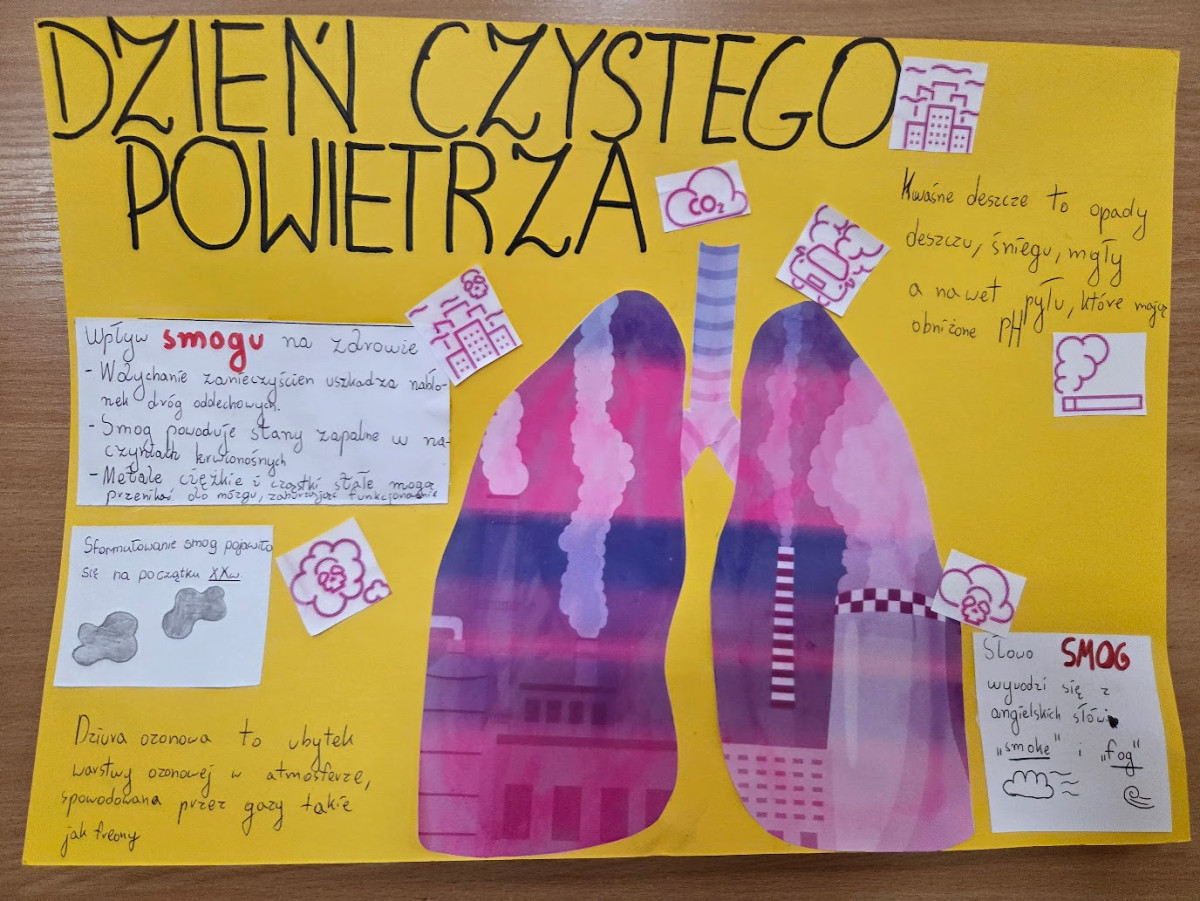 DZIEŃ CZYSTEGO
POWIETRZA
CO₂
Kwaśne deszcze to opady
deszczu, śniegu, mgły
a nawet pyłu, które mają
obniżone PH
Wpływ smogu na zdrowie
- Wdychanie zanieczyścien uszkadza nabło-
nek dróg oddechowych.
- Smog powoduje stany zapalne w na-
czyniach krwionośnych
- Metale ciężkie i cząstki stałe mogą
przenikać do mózgu, zaburzając funkcjonowanie
Sformułowanie smog pojawiło
się na początku XXw
Dziura ozonowa to ubytek
warstwy ozonowej w atmosferze,
spowodowana przez gazy takie
jak freony
Słowo SMOG
wywodzi się z
angielskich słów
„smoke" i „fog"